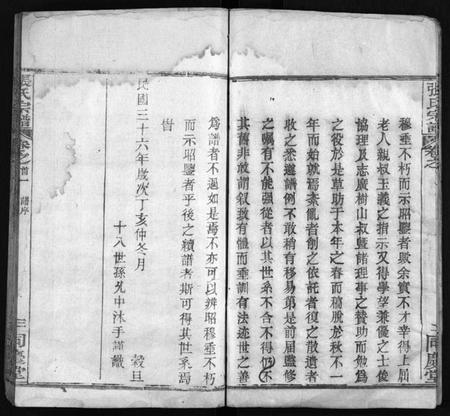 張氏宗譜 卷之
三同慶堂
穆垂不朽而示昭鑒者歟余實不才幸得上屆
老人親叔玉義之指示又得學孳兼優之士俊
協理及志廣樹山叔暨諸理事之贊助而勉為
之役於是草茆于本年之春而稿脫於秋不一
年而始就焉紊亂者創之依託者復之散遺者
收之悉遵譜例不敢稍有移易第是前屆監修
之囑有不能强從者以其世系不合不得仍不
其舊非敢謂叙致有體而垂訓有法迹世之善
為譜者不過如是焉不亦可以辨昭穆垂不朽
而示昭鑒者乎後之續譜者斯可得其世系焉
旹
民國三十六年歲次丁亥仲冬月 穀旦
十八世孫 中沐手謹識
張氏宗譜 卷之首一 譜序
三同慶堂